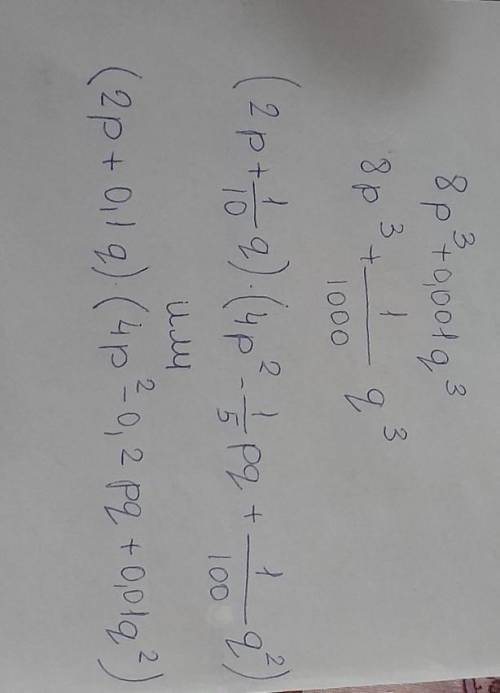 8p³+0,001q³
8p³+1/1000 q³
(2p+1/10 q)·(4p²-1/5 pq+1/100 q²)
или
(2p+0,1q)·(4p²-0,2pq+0,01q²)